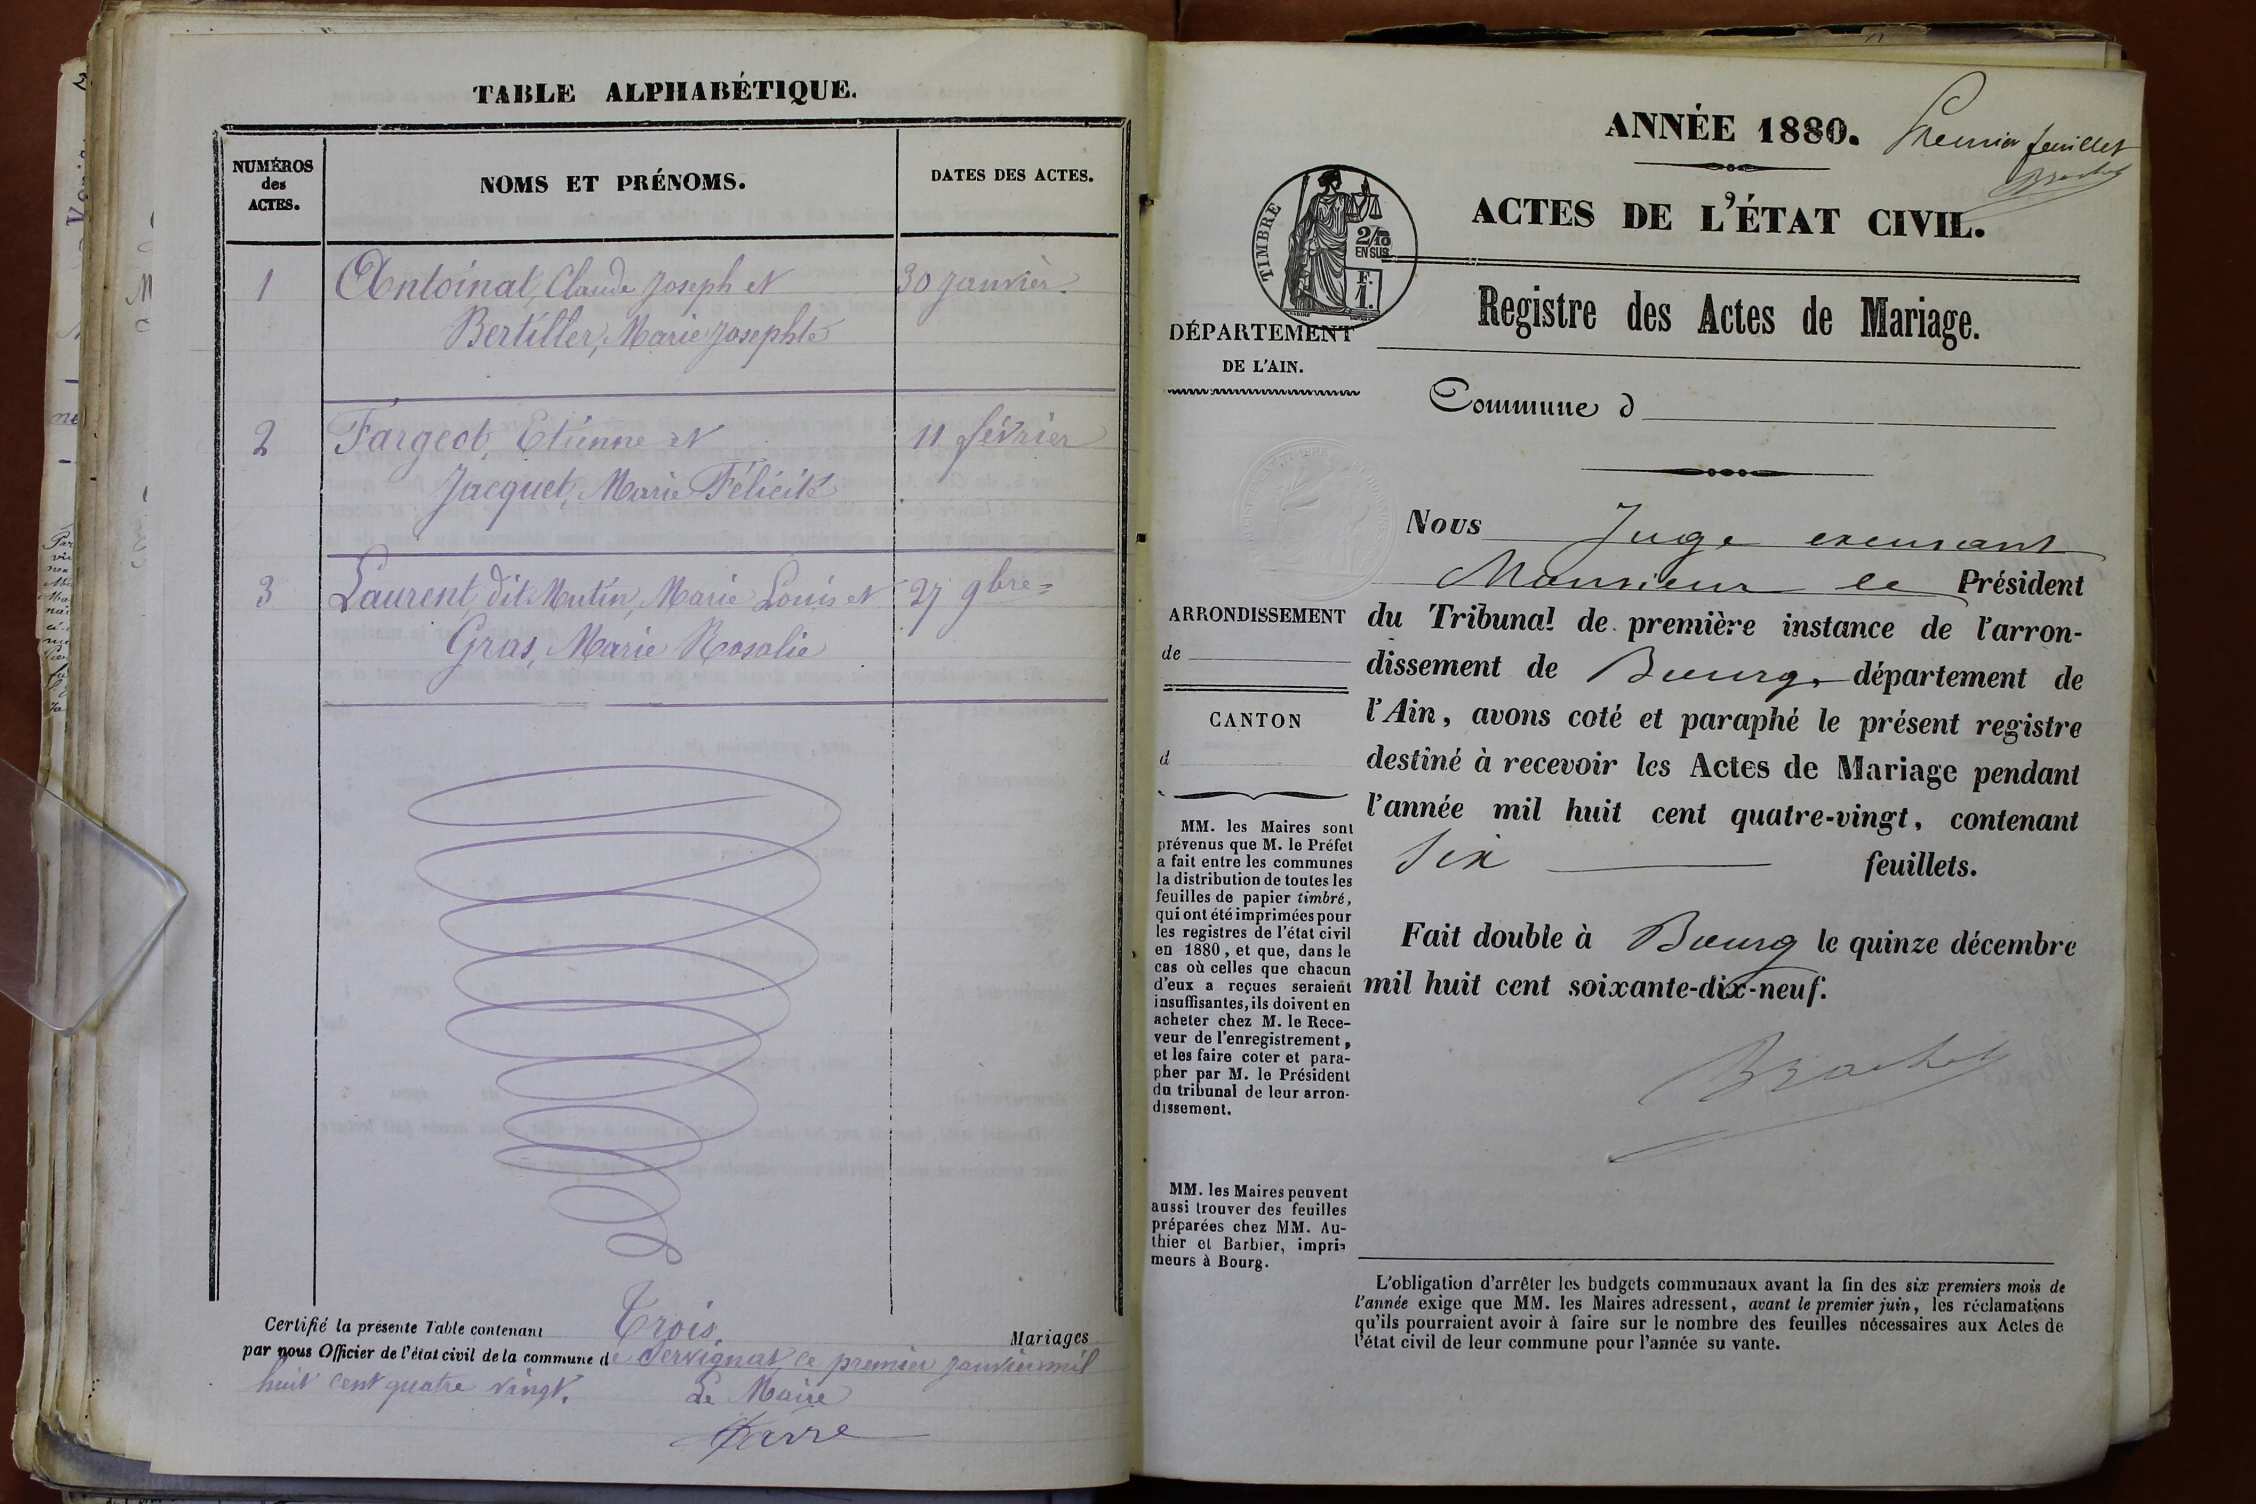 TABLE ALPHABÉTIQUE.
NUMÉROS des ACTES.
NOMS ET PRÉNOMS.
DATES DES ACTES.
1 Antoinat, Claude Joseph et 30 janvier.
Bertiller, Marie Josephte
2 Fargeot, Etienne et 11 février
Jacquet, Marie Félicité
3 Laurent, dit Mutin, Marie Louis et 27 9bre=
Gras, Marie Rosalie
Certifié la présente Table contenant Trois. Mariages
par nous Officier de l'état civil de la commune de Servignat ce premier janvier mil
huit cent quatre vingt. Le Maire
ANNÉE 1880. Premier feuillet
ACTES DE L'ÉTAT CIVIL.
TIMBRE
2/10
EN SUS
F.
1.
Registre des Actes de Mariage.
DÉPARTEMENT
DE L'AIN.
Commune d
ARRONDISSEMENT
de
CANTON
d
MM. les Maires sont
prévenus que M. le Préfet
a fait entre les communes
la distribution de toutes les
feuilles de papier timbré,
qui ont été imprimées pour
les registres de l'état civil
en 1880, et que, dans le
cas où celles que chacun
d'eux a reçues seraient
insuffisantes, ils doivent en
acheter chez M. le Rece-
veur de l'enregistrement,
et les faire coter et para-
pher par M. le Président
du tribunal de leur arron-
dissement.
MM. les Maires peuvent
aussi trouver des feuilles
préparées chez MM. Au-
thier et Barbier, impri-
meurs à Bourg.
Nous Juge
Monsieur le Président
du Tribunal de première instance de l'arron-
dissement de Bourg, département de
l'Ain, avons coté et paraphé le présent registre
destiné à recevoir les Actes de Mariage pendant
l'année mil huit cent quatre-vingt, contenant
Six feuillets.
Fait double à Bourg le quinze décembre
mil huit cent soixante-dix-neuf.
L'obligation d'arrêter les budgets communaux avant la fin des six premiers mois de
l'année exige que MM. les Maires adressent, avant le premier juin, les réclamations
qu'ils pourraient avoir à faire sur le nombre des feuilles nécessaires aux Actes de
l'état civil de leur commune pour l'année su vante.